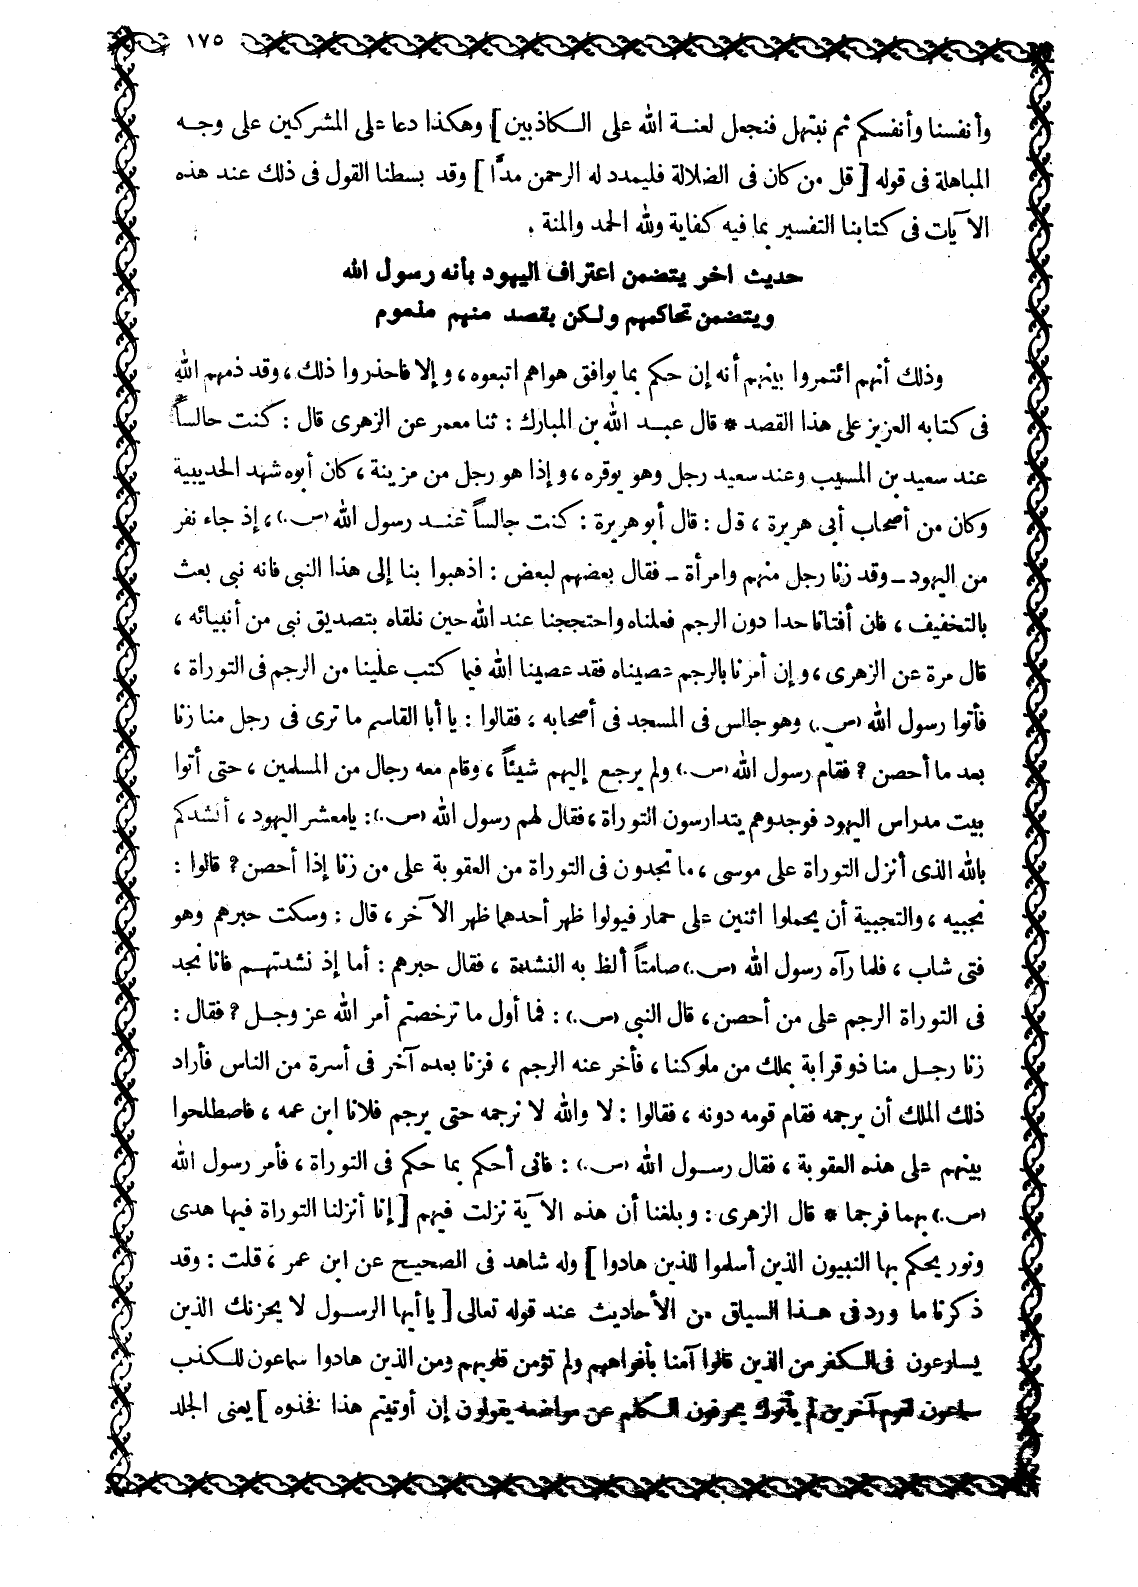 ١٧٥
وأنفسنا وأنفسكم ثم نبتهل فنجعل لعنة الله على الكاذبين ] وهكذا دعا على المشركين على وجه
المباهلة فى قوله [ قل من كان فى الضلالة فليمدد له الرحمن مدًّا ] وقد بسطنا القول فى ذلك عند هذه
الآيات فى كتابنا التفسير بما فيه كفاية ولله الحمد والمنة .
حديث اخر يتضمن اعتراف اليهود بأنه رسول الله
ويتضمن تحاكمهم ولكن بقصد منهم مذموم
وذلك أنهم ائتمروا بينهم أنه إن حكم بما يوافق هواهم اتبعوه ، وإلا فاحذروا ذلك ، وقد ذمهم الله
فى كتابه العزيز على هذا القصد * قال عبد الله بن المبارك : ثنا معمر عن الزهرى قال : كنت جالساً
عند سعيد بن المسيب وعند سعيد رجل وهو يوقره ، وإذا هو رجل من مزينة ، كان أبوه شهد الحديبية
وكان من أصحاب أبى هريرة ، قال : قال أبو هريرة : كنت جالساً عند رسول الله (ص.) ، إذ جاء نفر
من اليهود ـ وقد زنا رجل منهم وامرأة ـ فقال بعضهم لبعض : اذهبوا بنا إلى هذا النبى فانه نبى بعث
بالتخفيف ، فان أفتانا حدا دون الرجم فعلناه واحتججنا عند الله حين نلقاه بتصديق نبى من أنبيائه ،
قال مرة عن الزهرى ، وإن أمرنا بالرجم عصيناه فقد عصينا الله فيما كتب علينا من الرجم فى التوراة ،
فأتوا رسول الله (ص.) وهو جالس فى المسجد فى أصحابه ، فقالوا : يا أبا القاسم ما ترى فى رجل منا زنا
بعد ما أحصن ؟ فقام رسول الله (ص.) ولم يرجع إليهم شيئاً ، وقام معه رجال من المسلمين ، حتى أتوا
بيت مدراس اليهود فوجدوهم يتدارسون التوراة ، فقال لهم رسول الله (ص.) : يامعشر اليهود ، أنشدكم
بالله الذى أنزل التوراة على موسى ، ما تجدون فى التوراة من العقوبة على من زنا إذا أحصن ؟ قالوا :
نجبيه ، والتجبية أن يحملوا اثنين على حمار فيولوا ظهر أحدهما ظهر الآخر ، قال : وسكت حبرهم وهو
فتى شاب ، فلما رآه رسول الله (ص.) صامتاً ألظ به النشدة ، فقال حبرهم : أما إذ نشدتهم فانا نجد
فى التوراة الرجم على من أحصن ، قال النبى (ص.) : فما أول ما ترخصتم أمر الله عز وجل ؟ فقال :
زنا رجل منا ذو قرابة بملك من ملوكنا ، فأخر عنه الرجم ، فزنا بعده آخر فى أسرة من الناس فأراد
ذلك الملك أن يرجمه فقام قومه دونه ، فقالوا : لا والله لا نرجمه حتى يرجم فلانا ابن عمه ، فاصطلحوا
بينهم على هذه العقوبة ، فقال رسول الله (ص.) : فانى أحكم بما حكم فى التوراة ، فأمر رسول الله
(ص.) بهما فرجما * قال الزهرى : وبلغنا أن هذه الآية نزلت فيهم [ إنا أنزلنا التوراة فيها هدى
ونور يحكم بها النبيون الذين أسلموا للذين هادوا ] وله شاهد فى الصحيح عن ابن عمر ، قلت : وقد
ذكرنا ما ورد فى هذا السياق من الأحاديث عند قوله تعالى [ يا أيها الرسول لا يحزنك الذين
يسارعون فى الكفر من الذين قالوا آمنا بأفواههم ولم تؤمن قلوبهم ومن الذين هادوا سماعون للكذب
سماعون لقوم آخرين لم يأتوك يحرفون الكلم عن مواضعه يقولون إن أوتيتم هذا فخذوه ] يعنى الجلد